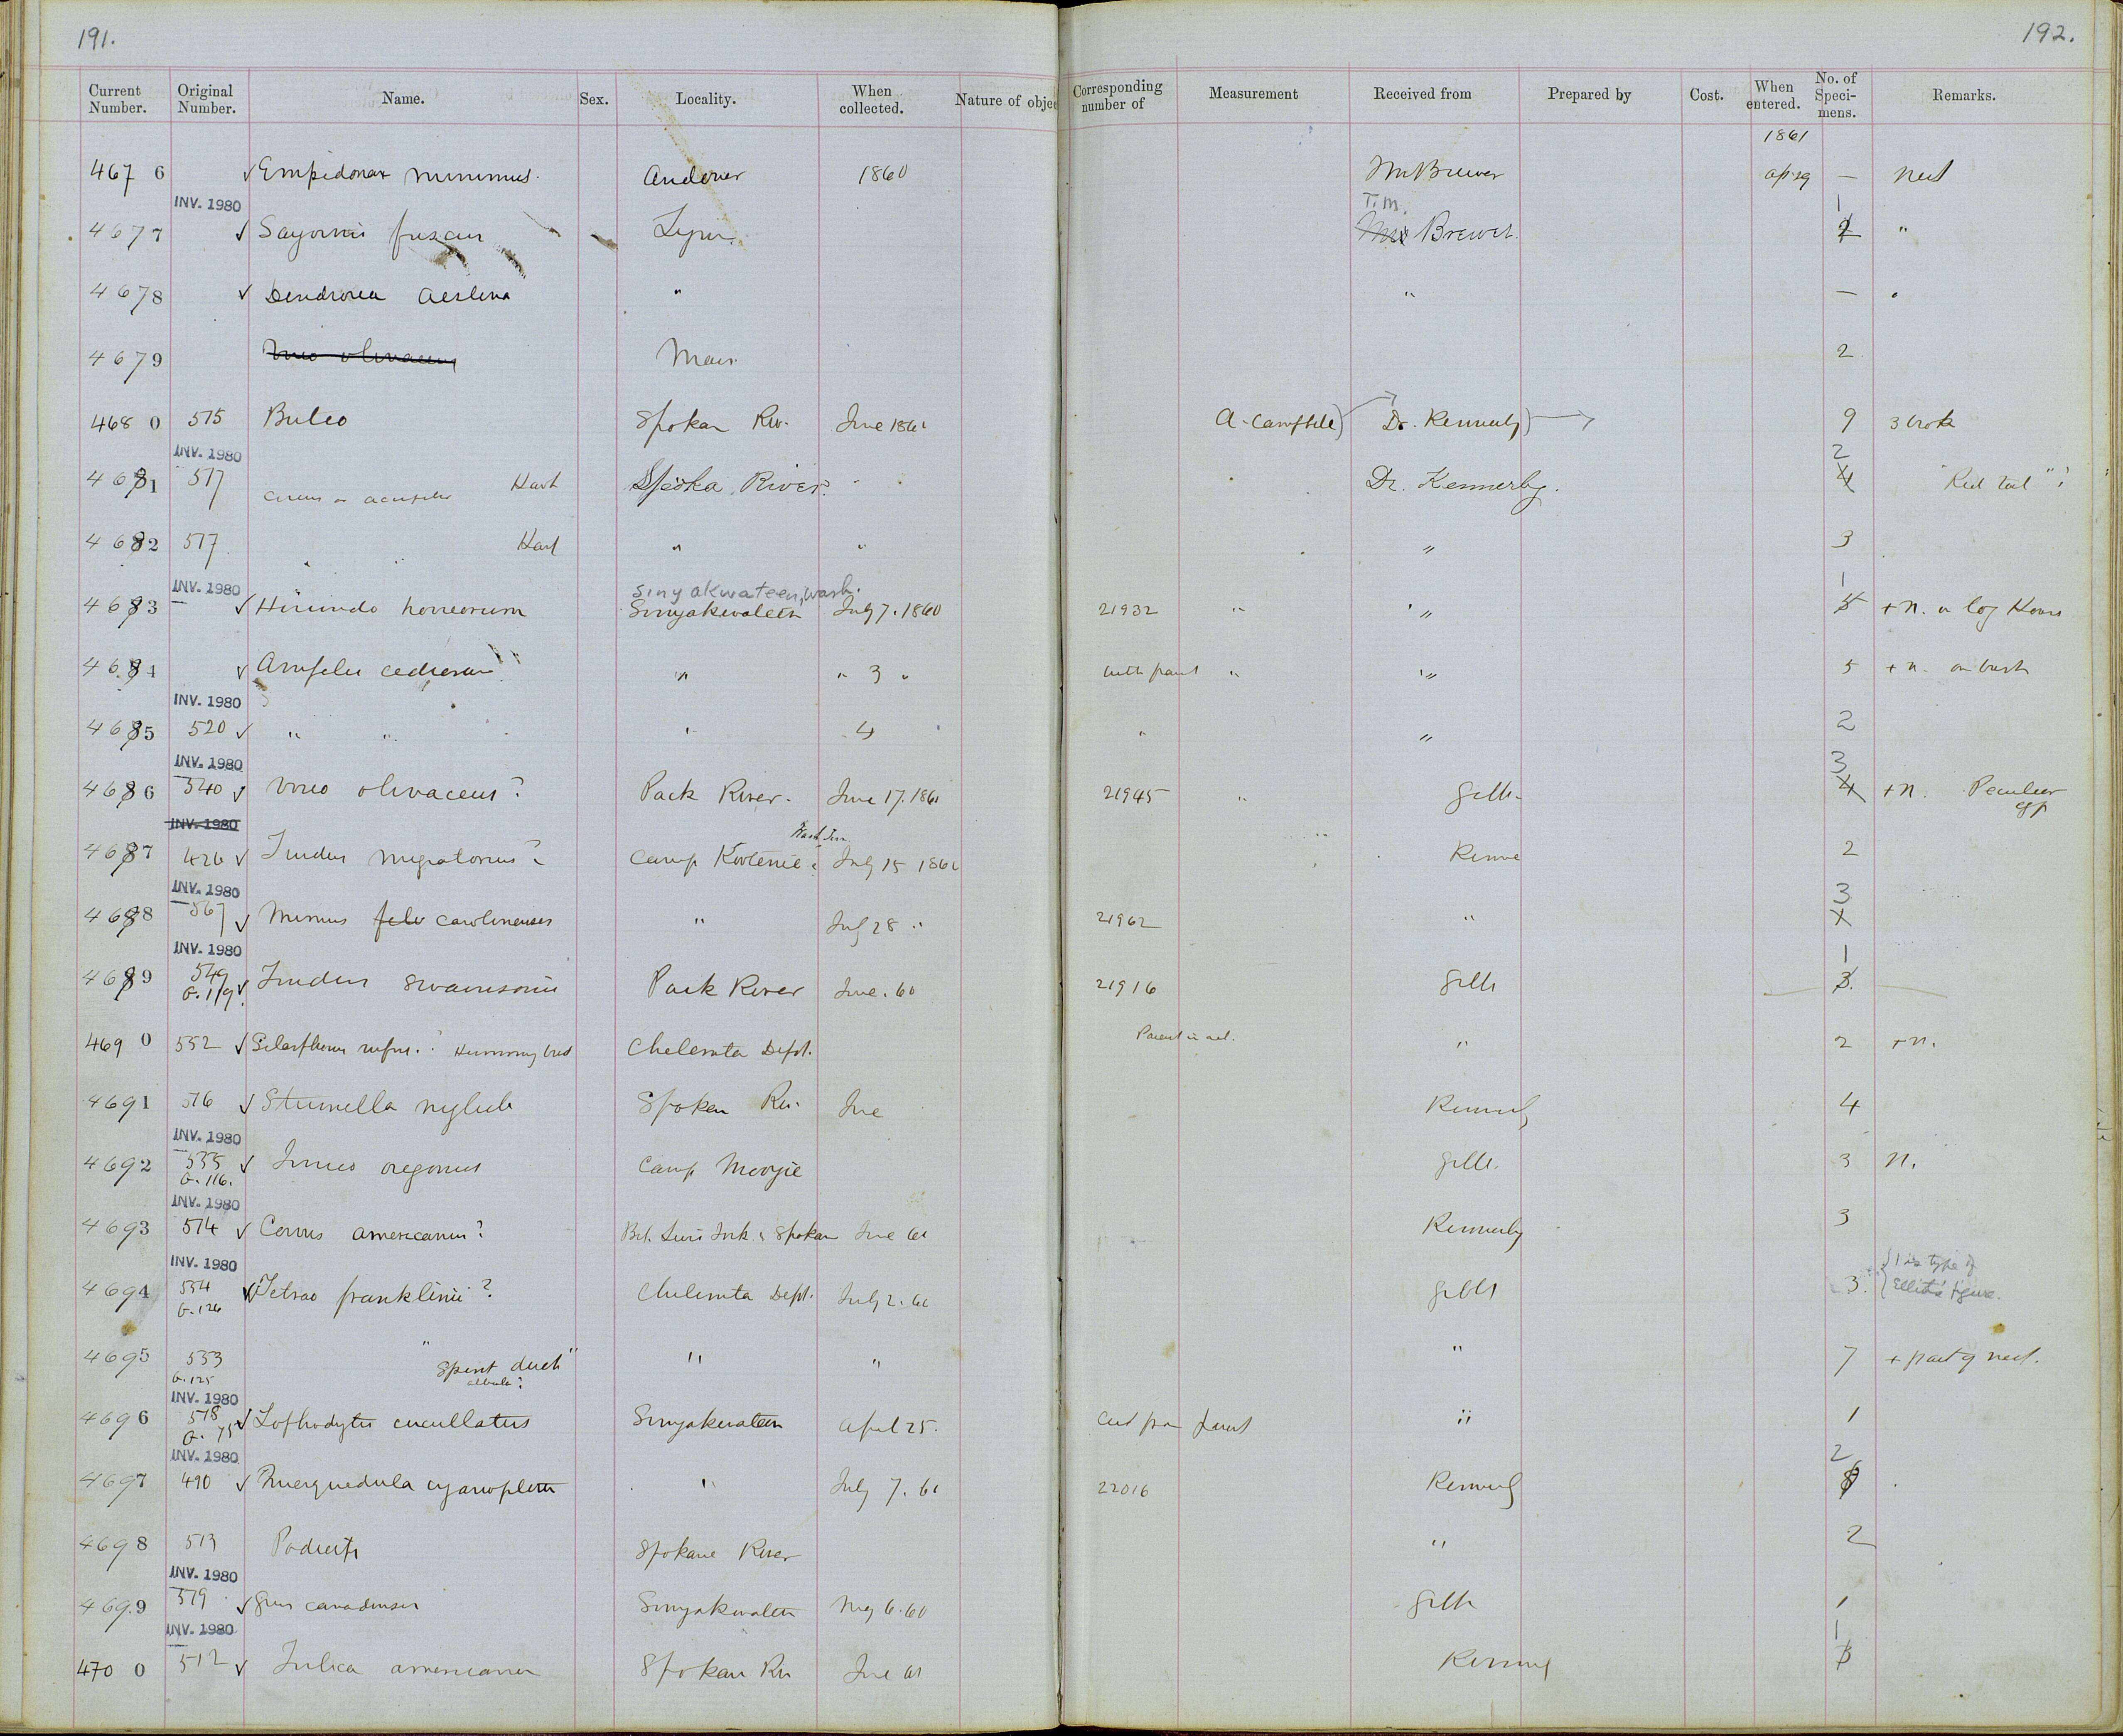 191. 192.
Current Number. Original Number. Name. Sex. Locality. When collected. Nature of objec Corresponding number of Measurement Received from Prepared by Cost. When entered. No. of Speci-mens. Remarks.
1861
4676 ✓ Empidonax minimus. Andover 1860 Brewer ap. 29 — nest
INV. 1980 T.M. 1
4677 ✓ Sayornis fuscus Lynn. Brewer. 2 "
4678 ✓ Dendroica aestiva " " —
4679 Vireo olivaceus Mass. 2
4680 575 Buteo Spokan Riv. June 1860 A. Campbell) Dr. Kennerly) 9 3 brok
INV. 1980 2
4681 517 Circus or accipiter Hawk River. " Dr. Kennerly. 4 "Red tail"?
4682 517. " " Hawk " " " 3
INV. 1980 Sinyakwateen, Wash. 1
4683 — ✓ Hirundo horreorum Sinyakwateen July 7. 1860 21932 " " 5 + n.
4684 ✓ Ampelis cedrorum " " 3 " with parent " " 5 + n. on bush
INV. 1980 2
4685 520 ✓ " " " 4 " " "
INV. 1980 3
4686 540 ✓ Vireo olivaceus? Pack River. June 17. 1860 21945 " Gibbs. 4 + n. Peculiar
INV. 1980
4687 426 ✓ Turdus migratorius? Camp Kootenie July 15 1860 Kenne 2
INV. 1980 3
4688 567 ✓ Mimus carolinensis " July 28 " 21962 "
INV. 1980 1
4689 549 G. 119 ✓ Turdus swainsonii Pack River June. 60 21916 Gibbs 3.
4690 552 ✓ Selasphorus rufus. ? Humming bird Chelemta Depot. Parent in " 2 + n.
4691 576 ✓ Sturnella neglecta Spokan Riv. June Kennerly 4
INV. 1980
4692 535 G. 116. ✓ Junco oregonus Camp Mooyie Gibbs. 3 n.
INV. 1980
4693 574 ✓ Corvus americanus? Spokan June 60 Kennerly 3
INV. 1980
4694 554 G. 126 ✓ Tetrao franklinii? Chelemta Depot. July 2. 60 Gibbs 3. {1 is type of Elliot's figure.
4695 553 G. 125 " "Spirit duck" albeola? " " " 7 + part of nest.
INV. 1980
4696 518 G. 75 ✓ Lophodytes cucullatus Sinyakwateen April 25. Cut from parent " 1
INV. 1980 2
4697 490 ✓ Querquedula cyanoptera " July 7. 60 22016 Kennerly
4698 513 Podiceps Spokane River " 2
INV. 1980
4699 579 ✓ Grus canadensis Sinyakwateen May 6. 60 Gibbs 1
INV. 1980 1
4700 512 ✓ Fulica americana Spokan Riv June 60 Kennerly